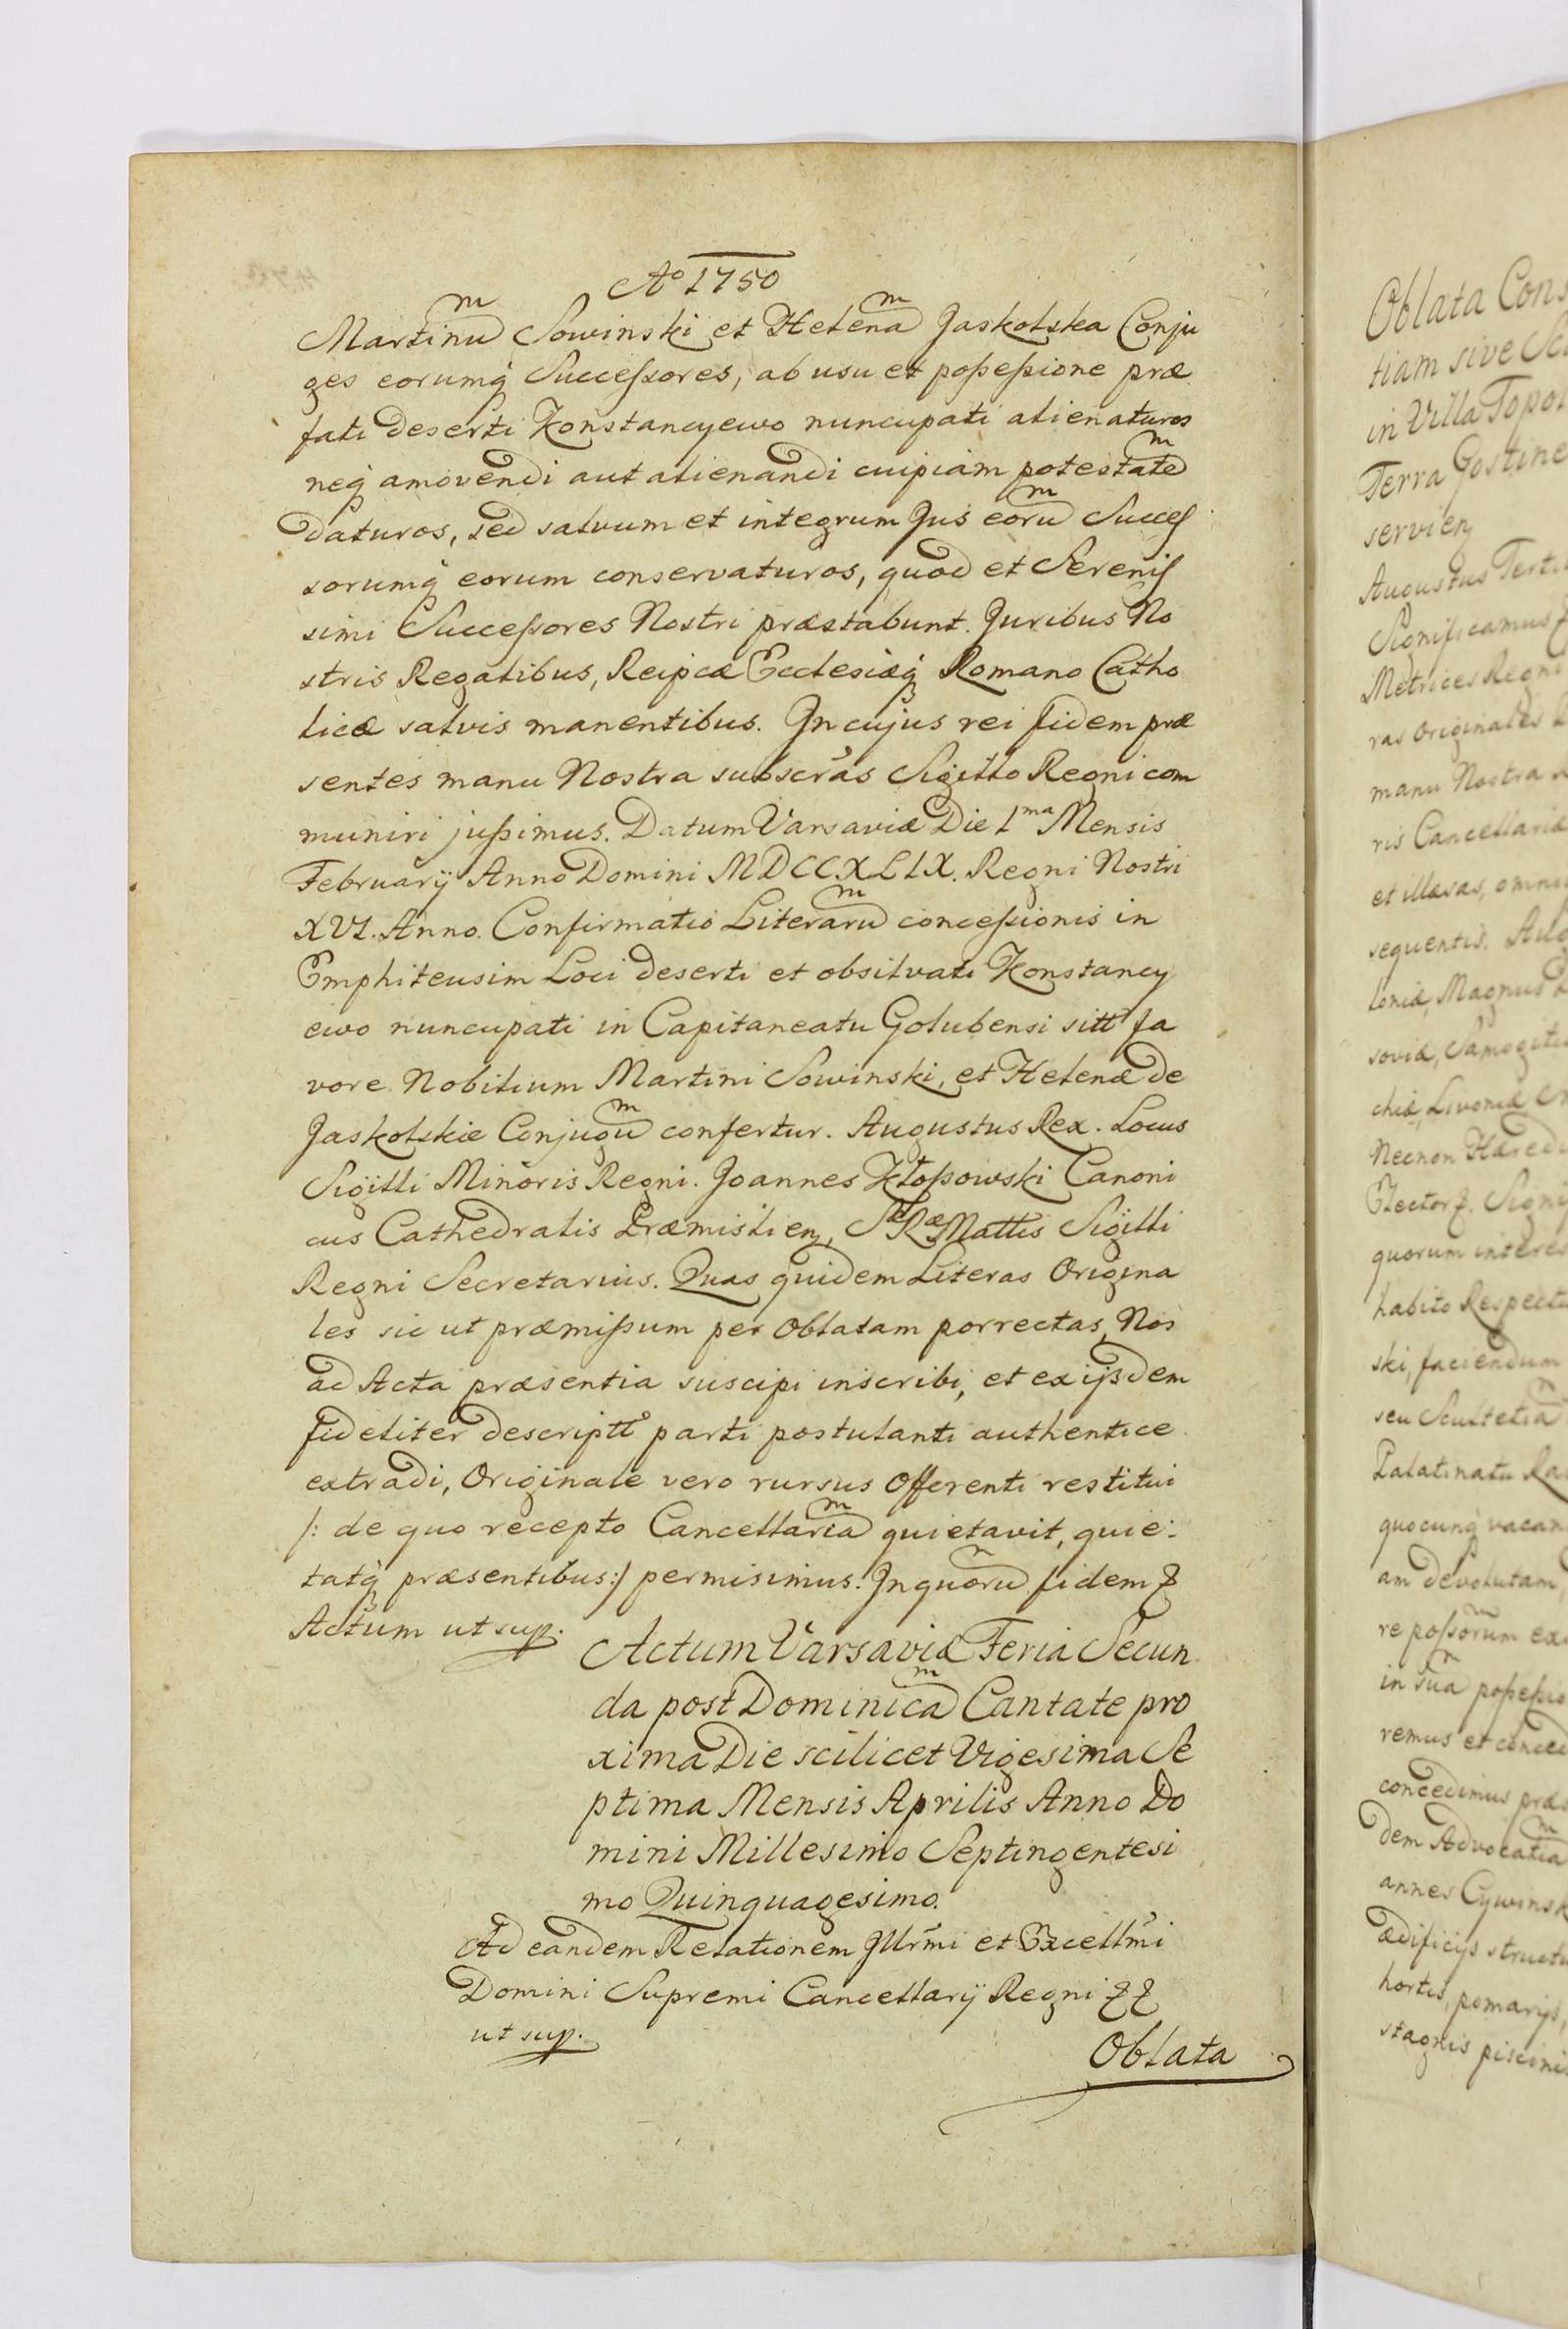 Aº 1750
Martinũ Sowinski et Helenã Jaskolska Conju
ges eorumq́ Successores, ab usu et possessione præ
fati deserti Konstancyewo nuncupati alienaturos
neq́ amovendi aut alienandi cuipiam potestatẽ
daturos, sed salvum et integrum Jus eorũ Succes
sorumq́ eorum conservaturos, quod et Serenis
simi Successores Nostri præstabunt. Juribus No
stris Regalibus, Reipcæ Ecclesiæq́ Romano Catho
licæ salvis manentibus. In cujus rei fidem præ
sentes manu Nostra subscr̃as Sigillo Regni com
muniri jussimus. Datum Varsaviæ Die 1ma Mensis
Februarÿ Anno Domini MDCCXLIX. Regni Nostri
XVI. Anno. Confirmatio Literarũ concessionis in
Emphiteusim Loci deserti et obsilvati Konstancy
ewo nuncupati in Capitaneatu Golubensi sitt fa
vore Nobilium Martini Sowinski, et Helenæ de
Jaskolskie Conjugũ confertur. Augustus Rex. Locus
Sigilli Minoris Regni. Joannes Kłossowski Canoni
cus Cathedralis Præmislien, S Ræ Mattis Sigilli
Regni Secretarius. Quas quidem Literas Origina
les sic ut præmissum per Oblatam porrectas, Nos
ad Acta præsentia suscipi inscribi, et ex ijsdem
fideliter descriptº parti postulanti authentice
extradi, Originale vero rursus Offerenti restitui
/: de quo recepto Cancellariã quietavit, quie:
tatq́ præsentibus:/ permisimus. In quorũ fidem &
Actum ut sup.
Actum Varsaviæ Feria Secun
da post Dominicã Cantate pro
xima Die scilicet Vigesima Se
ptima Mensis Aprilis Anno Do
mini Millesimo Septingentesi
mo Quinquagesimo.
Ad eandem Relationem Illr̃mi et Excellm̃i
Domini Supremi Cancellarÿ Regni & &
ut sup.
Oblata
Oblata Cons
tiam sive Sc
in Villa Topol
Terra Gostine
servien
Augustus Terti
Significamus
Metrices Regni
ras Originales
manu Nostra
ris Cancellariæ
et illæsas, omni
sequentis. Aug
loniæ, Magnus
soviæ, Samogiti
chiæ, Livoniæ
Necnon Hæredi
Elector &. Signi
quorum interes
habito Respectu
ski, faciendum
seu Scultetiã
Palatinatu Ra
quocunq́ vacan
am devolutam
re possorum ex
in suã possessio
remus et conce
concedimus præ
dem Advocatiã
annes Cywinsk
ædificijs structu
hortis, pomarijs,
stagnis piscinis